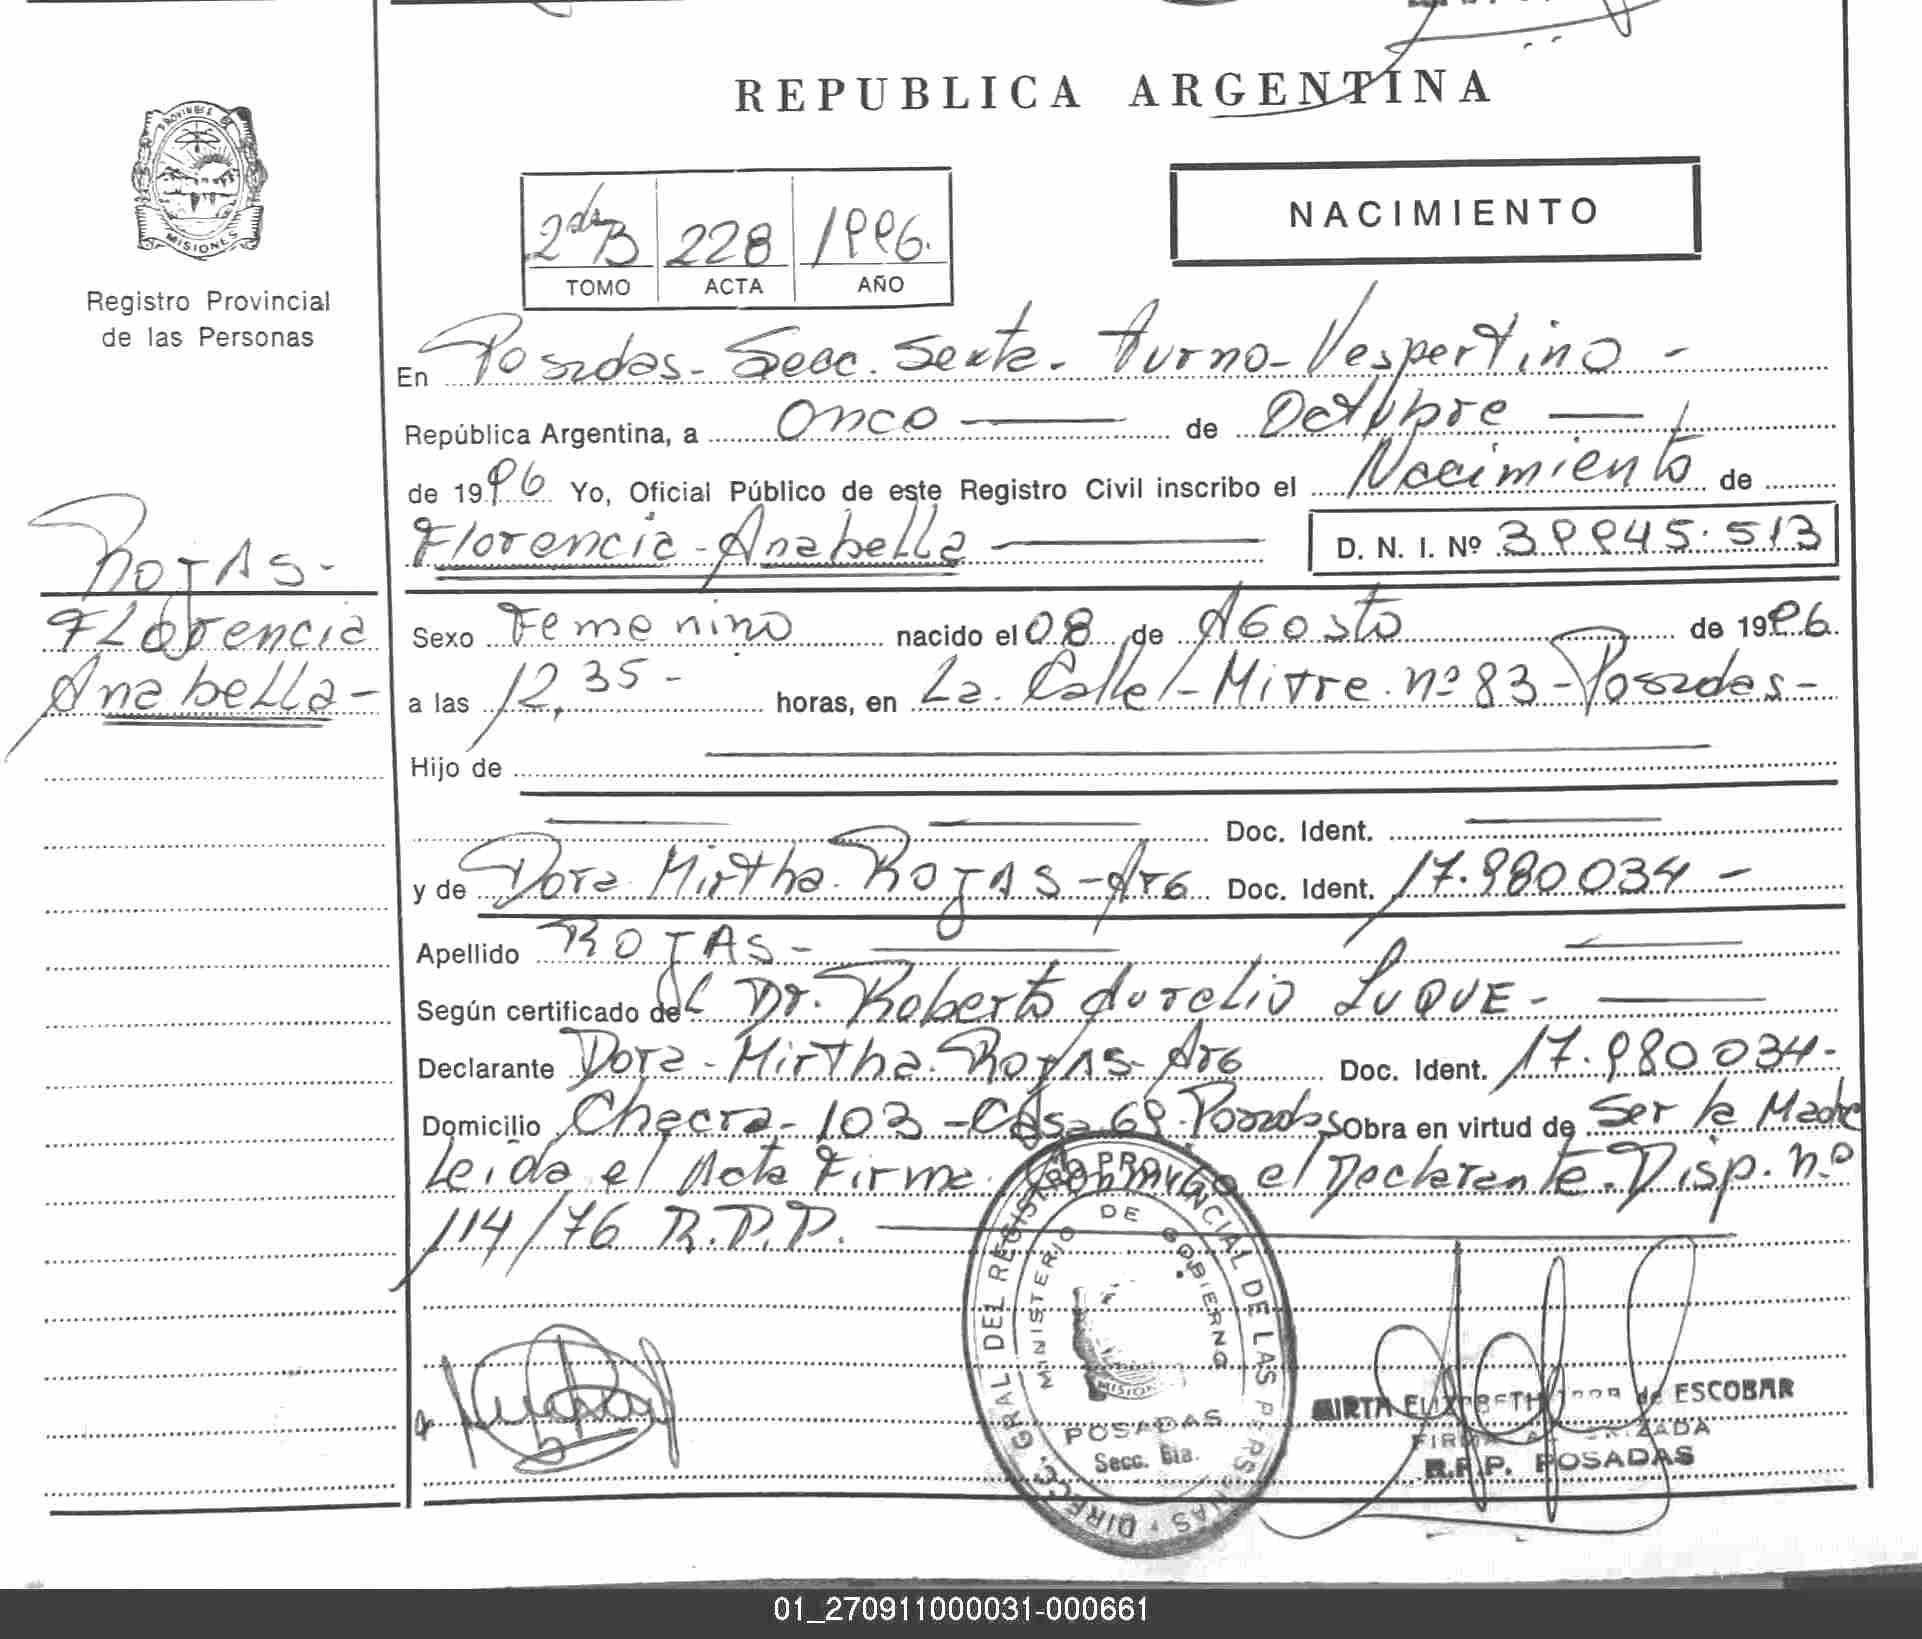 REPUBLICA ARGENTINA
PROVINCIA DE
MISIONES
Registro Provincial
de las Personas
2da B 228 1996.
TOMO ACTA AÑO
NACIMIENTO
En Posadas - Secc. Sexta - Turno - Vespertino -
República Argentina, a Once de Octubre
de 1996 Yo, Oficial Público de este Registro Civil inscribo el Nacimiento de
Florencia - Anabella D. N. I. Nº 39945.513
ROJAS -
Florencia
Anabella -
Sexo Femenino nacido el 08 de Agosto de 1996.
a las 12,35 - horas, en La Calle - Mitre nº 83 - Posadas -
Hijo de
Doc. Ident.
y de Dora Mirtha ROJAS - Arg Doc. Ident. 17.980034 -
Apellido ROJAS -
Según certificado del Dr. Roberto Aurelio LUQUE -
Declarante Dora - Mirtha ROJAS - Arg Doc. Ident. 17.980034 -
Domicilio Chacra - 103 - Casa 69 - Posadas Obra en virtud de Ser la Madre
Leida el Acta Firma Conmigo el Declarante. Disp. nº
114/76 R.P.P.
DIRECC. GRAL DEL REGISTRO PROVINCIAL DE LAS PERSONAS
MINISTERIO DE GOBIERNO
MISIONES
POSADAS
Secc. 6ta.
MIRTA ELIZABETH de ESCOBAR
FIRMA AUTORIZADA
R.P.P. POSADAS
01_270911000031-000661